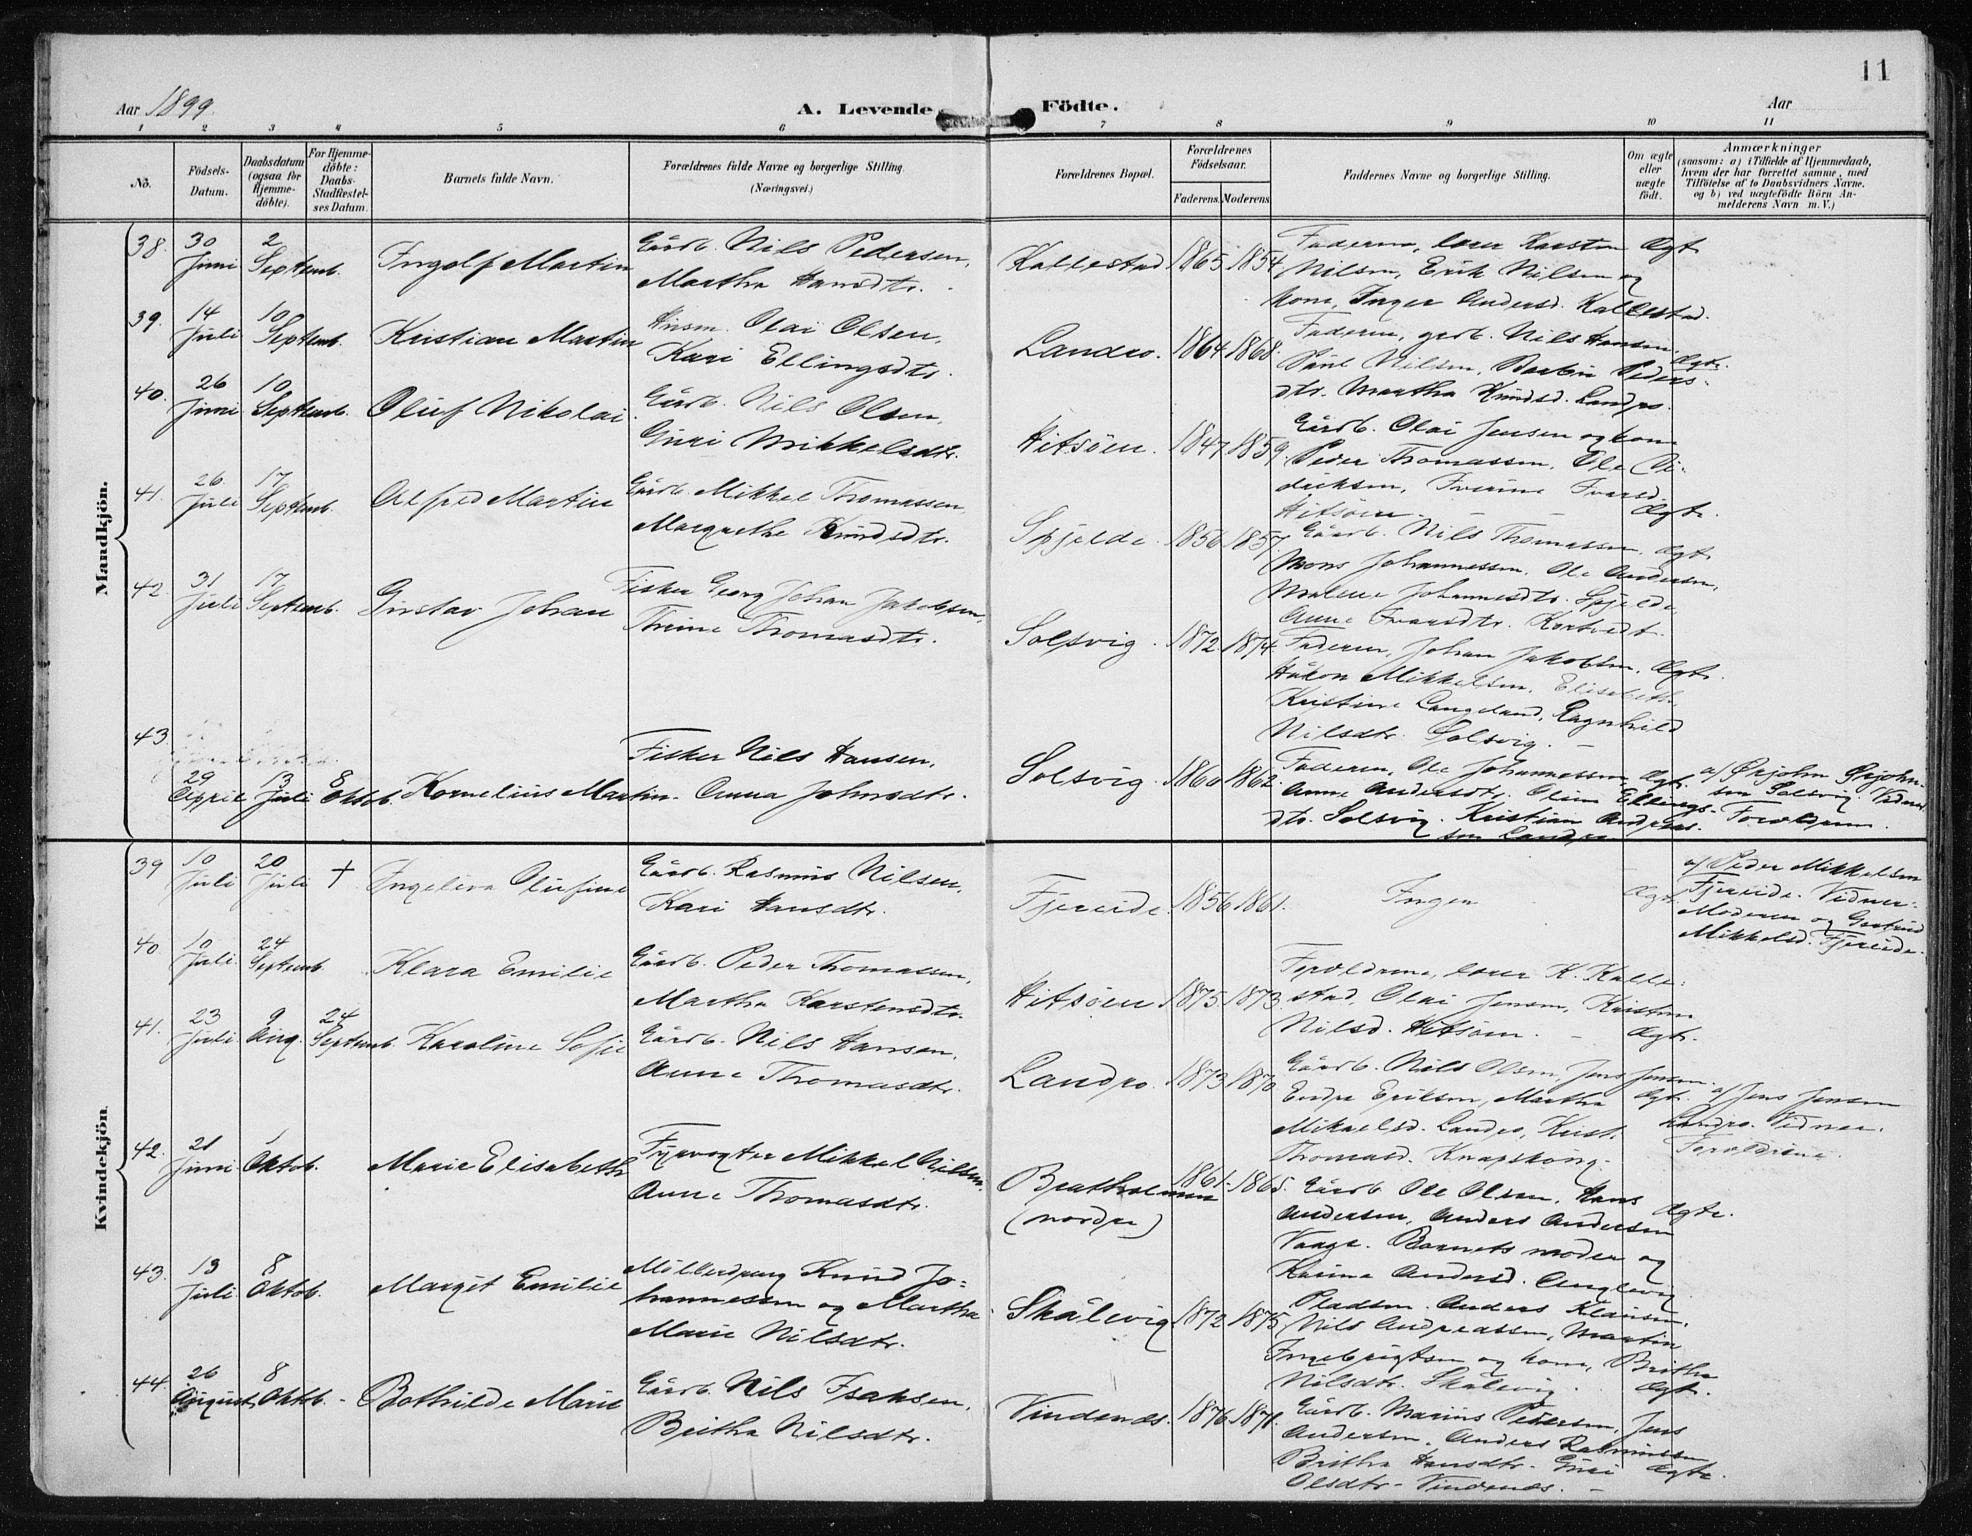 11
Aar 1899.
A. Levende Födte.
Aar
1 2 3 4 5 6 7 8 9 10 11
No.
Födsels-
Datum.
Daabsdatum
(ogsaa for
Hjemme-
döbte).
For Hjemme-
döbte:
Daabs-
Stadfæstel-
ses Datum.
Barnets fulde Navn.
Forældrenes fulde Navne og borgerlige Stilling.
(Næringsvei.)
Forældrenes Bopæl.
Forældrenes
Födselsaar.
Faderens. Moderens.
Faddernes Navne og borgerlige Stilling.
Om ægte
eller
uægte
født.
Anmærkninger
(saasom: a) i Tilfælde af Hjemmedaab,
hvem der har forrettet samme, med
Tilföielse af to Daabsvidners Navne,
og b) ved uægtefödte Börn An-
melderens Navn m. V.)
Mandkjön.
38. 30 Juni 2 Septemb. Ingolf Martin
Gårdb. Nils Pedersen,
Martha Hansdtr.
Kallestad 1865. 1854.
Faderen, lærer Karsten
Nilsen, Erik Nilsen og
kone, Inger Andersd. Kallestad.
Ægte
39. 14 Juli 10 Septemb. Kristian Martin
Husm. Olai Olsen,
Kari Ellingsdtr.
Landro. 1864. 1868.
Faderen, grdb. Nils Hansen,
Nilsen, Peders-
dtr. Martha Knudsd. Landro.
Ægte.
40. 26 Juni 10 Septemb. Oluf Nikolai
Gårdb. Nils Olsen,
Guri Mikkelsdtr.
Hitsöen. 1847. 1859.
Gårdb. Olai Jensen og kone
Peder Thomassen, Ole Di-
driksen, Iverine Ivarsd.
Hitsöen.
Ægte.
41. 26. Juli 17 Septemb. Alfred Martin
Gårdb. Mikkel Thomassen
Margrethe Knudsdtr.
Spjelde. 1850 1857.
Gårdb. Nils Thomassen,
Mons Johannessen, Ole Andersen,
Malene Johannesdtr. Spjelde,
Anne Ivarsdtr.
Ægte
42. 31 Juli 17 Septemb. Gustav Johan
Fisker Georg Johan Jakobsen,
Thomasdtr.
Solsvig. 1872. 1874.
Faderen, Johan Jakobsen.
Håkon Mikkelsen, Elisabeth
Kristine Langeland, Ragnhild
Nilsdtr. Solsvig.
Ægte.
43. 29 April 13 Juli 8 Oktob. Kornelius Martin.
Fisker Nils Hansen,
Anna Johnsdtr.
Solsvig. 1860 1862.
Faderen, Ole Johannessen
Anne Andersdtr. Ellings-
dtr. Solsvig. Kristian Andreas-
sen Landro
Ægte.
af Ørjohn Ørjohn-
sen Solsvig. Vidner
Forældrene.
Kvindekjön.
39 10 Juli 20 Juli † Ingeleva Olufine
Gårdb. Rasmus Nilsen,
Kari Hansdtr.
Fjereide. 1856 1861.
Ingen
Ægte
af Peder Mikkelsen
Fjereide. Vidner:
Moderen og Gjertrud
Mikkelsd. Fjereide.
40. 10 Juli. 24 Septemb. Klara Emilie
Gårdb. Peder Thomassen,
Martha Karstensdtr.
Hitsöen 1875. 1873.
Forældrene, lærer K. Kalle-
stad, Olai Jensen, Kristen
Nilsd. Hitsöen.
Ægte.
41. 23 Juli. 9 Aug. 24 Septemb. Karoline Sofie
Gårdb. Nils Hansen,
Anne Thomasdtr.
Landro. 1873. 1870
Gårdb. Nils Olsen, Jens Jensen.
Endre Eriksen, Martha
Mikaelsd. Landro, Krist.
Thomasd. Knapskong.
Ægte.
af Jens Jensen
Landro. Vidner:
Forældrene.
42. 21 Juni 1 Oktob. Marie Elisabeth
Fyrvogter Mikkel Nilsen.
Anne Thomasdtr.
Bratholmen
(nordre)
1861. 1865.
Gårdb. Ole Olsen, Hans
Andersen, Anders Andersen
Vaage. Barnets moder og
Karina Andersd. Anglevig
Ægte.
43. 13 Juli. 8 Oktob. Margit Emilie
Mölledreng Knud Jo-
hannessen og Martha
Marie Nilsdtr.
Skålevig. 1872 1875.
Pladsm. Anders Klausen,
Nils Andreassen, Martin
Ingebrigtsen og kone, Britha
Nilsdtr. Skålevig.
Ægte.
44. 26 August. 8 Oktob. Bothilde Marie
Gårdb. Nils Isaksen,
Britha Nilsdtr.
Vindenæs. 1876. 1871.
Gårdb. Marius Petersen, Jens
Andersen, Anders Rasmussen
Britha Hansdtr. Guri
Olsdtr. Vindenæs.
Ægte.